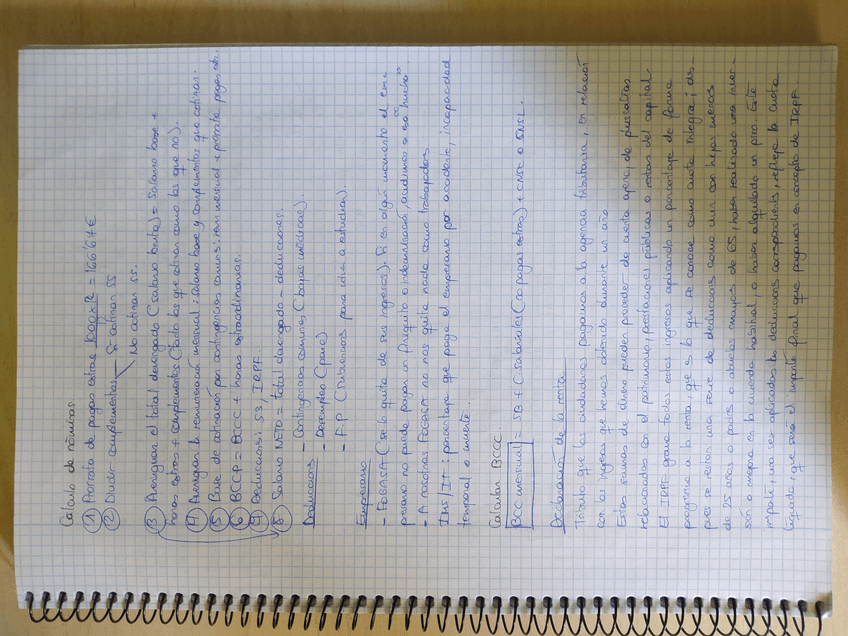 Cálculo de nóminas
① Prorrata de pagas extras 1000x2/12 = 166'67€
② Dividir complementos Si cotizan SS
No cotizan SS.
③ Averiguar el total devengado (salario bruto) = Salario base +
horas extras + complementos (tanto los que cotizan como los que no).
④ Averiguar la remuneración mensual: salario base y complementos que cotizan.
⑤ Base de cotización por contingencias comunes: rem mensual + prorrata pagas ext.
⑥ BCCP = BCCC + horas extraordinarias.
⑦ Deducciones: SS, IRPF
⑧ Salario NETO = total devengado - deducciones.
Deducciones
- Contingencias comunes (bajas médicas).
- Desempleo (paro)
- F.P (Subvenciones para irse a estudiar).
Empresario
- FOGASA (se lo quita de sus ingresos). Si en algún momento el em-
presario no puede pagar un finiquito o indemnización, acudimos a ese "fondo".
- A nosotros FOGASA no nos quita nada como trabajador.
IMS/IT: porcentaje que paga el empresario por accidente, incapacidad
temporal o muerte.
Calcular BCCC
BCC mensual = SB + C.Salariales (no pagas extras) + CNSC o SNSL.
Declaración de la renta
Tributo que los ciudadanos pagamos a la agencia tributaria, en relación
con los ingresos que hemos obtenido durante un año
Estas sumas de dinero pueden proceder de cuenta ajena, de iniciativas
relacionadas con el patrimonio, prestaciones públicas o rentas del capital.
El IRPF grava todos estos ingresos aplicando un porcentaje de forma
progresiva a la renta que es lo que se conoce como cuota íntegra; des
pues se restan una serie de deducciones como vivir con hijos menores
de 25 años o padres o abuelos mayores de 65, haber realizado una inver-
sión o mejora en la vivienda habitual, o haber alquilado un piso. Este
importe, una vez aplicadas las deducciones correspondientes, refleja la cuota
líquida, que será el importe final que pagamos en concepto de IRPF.